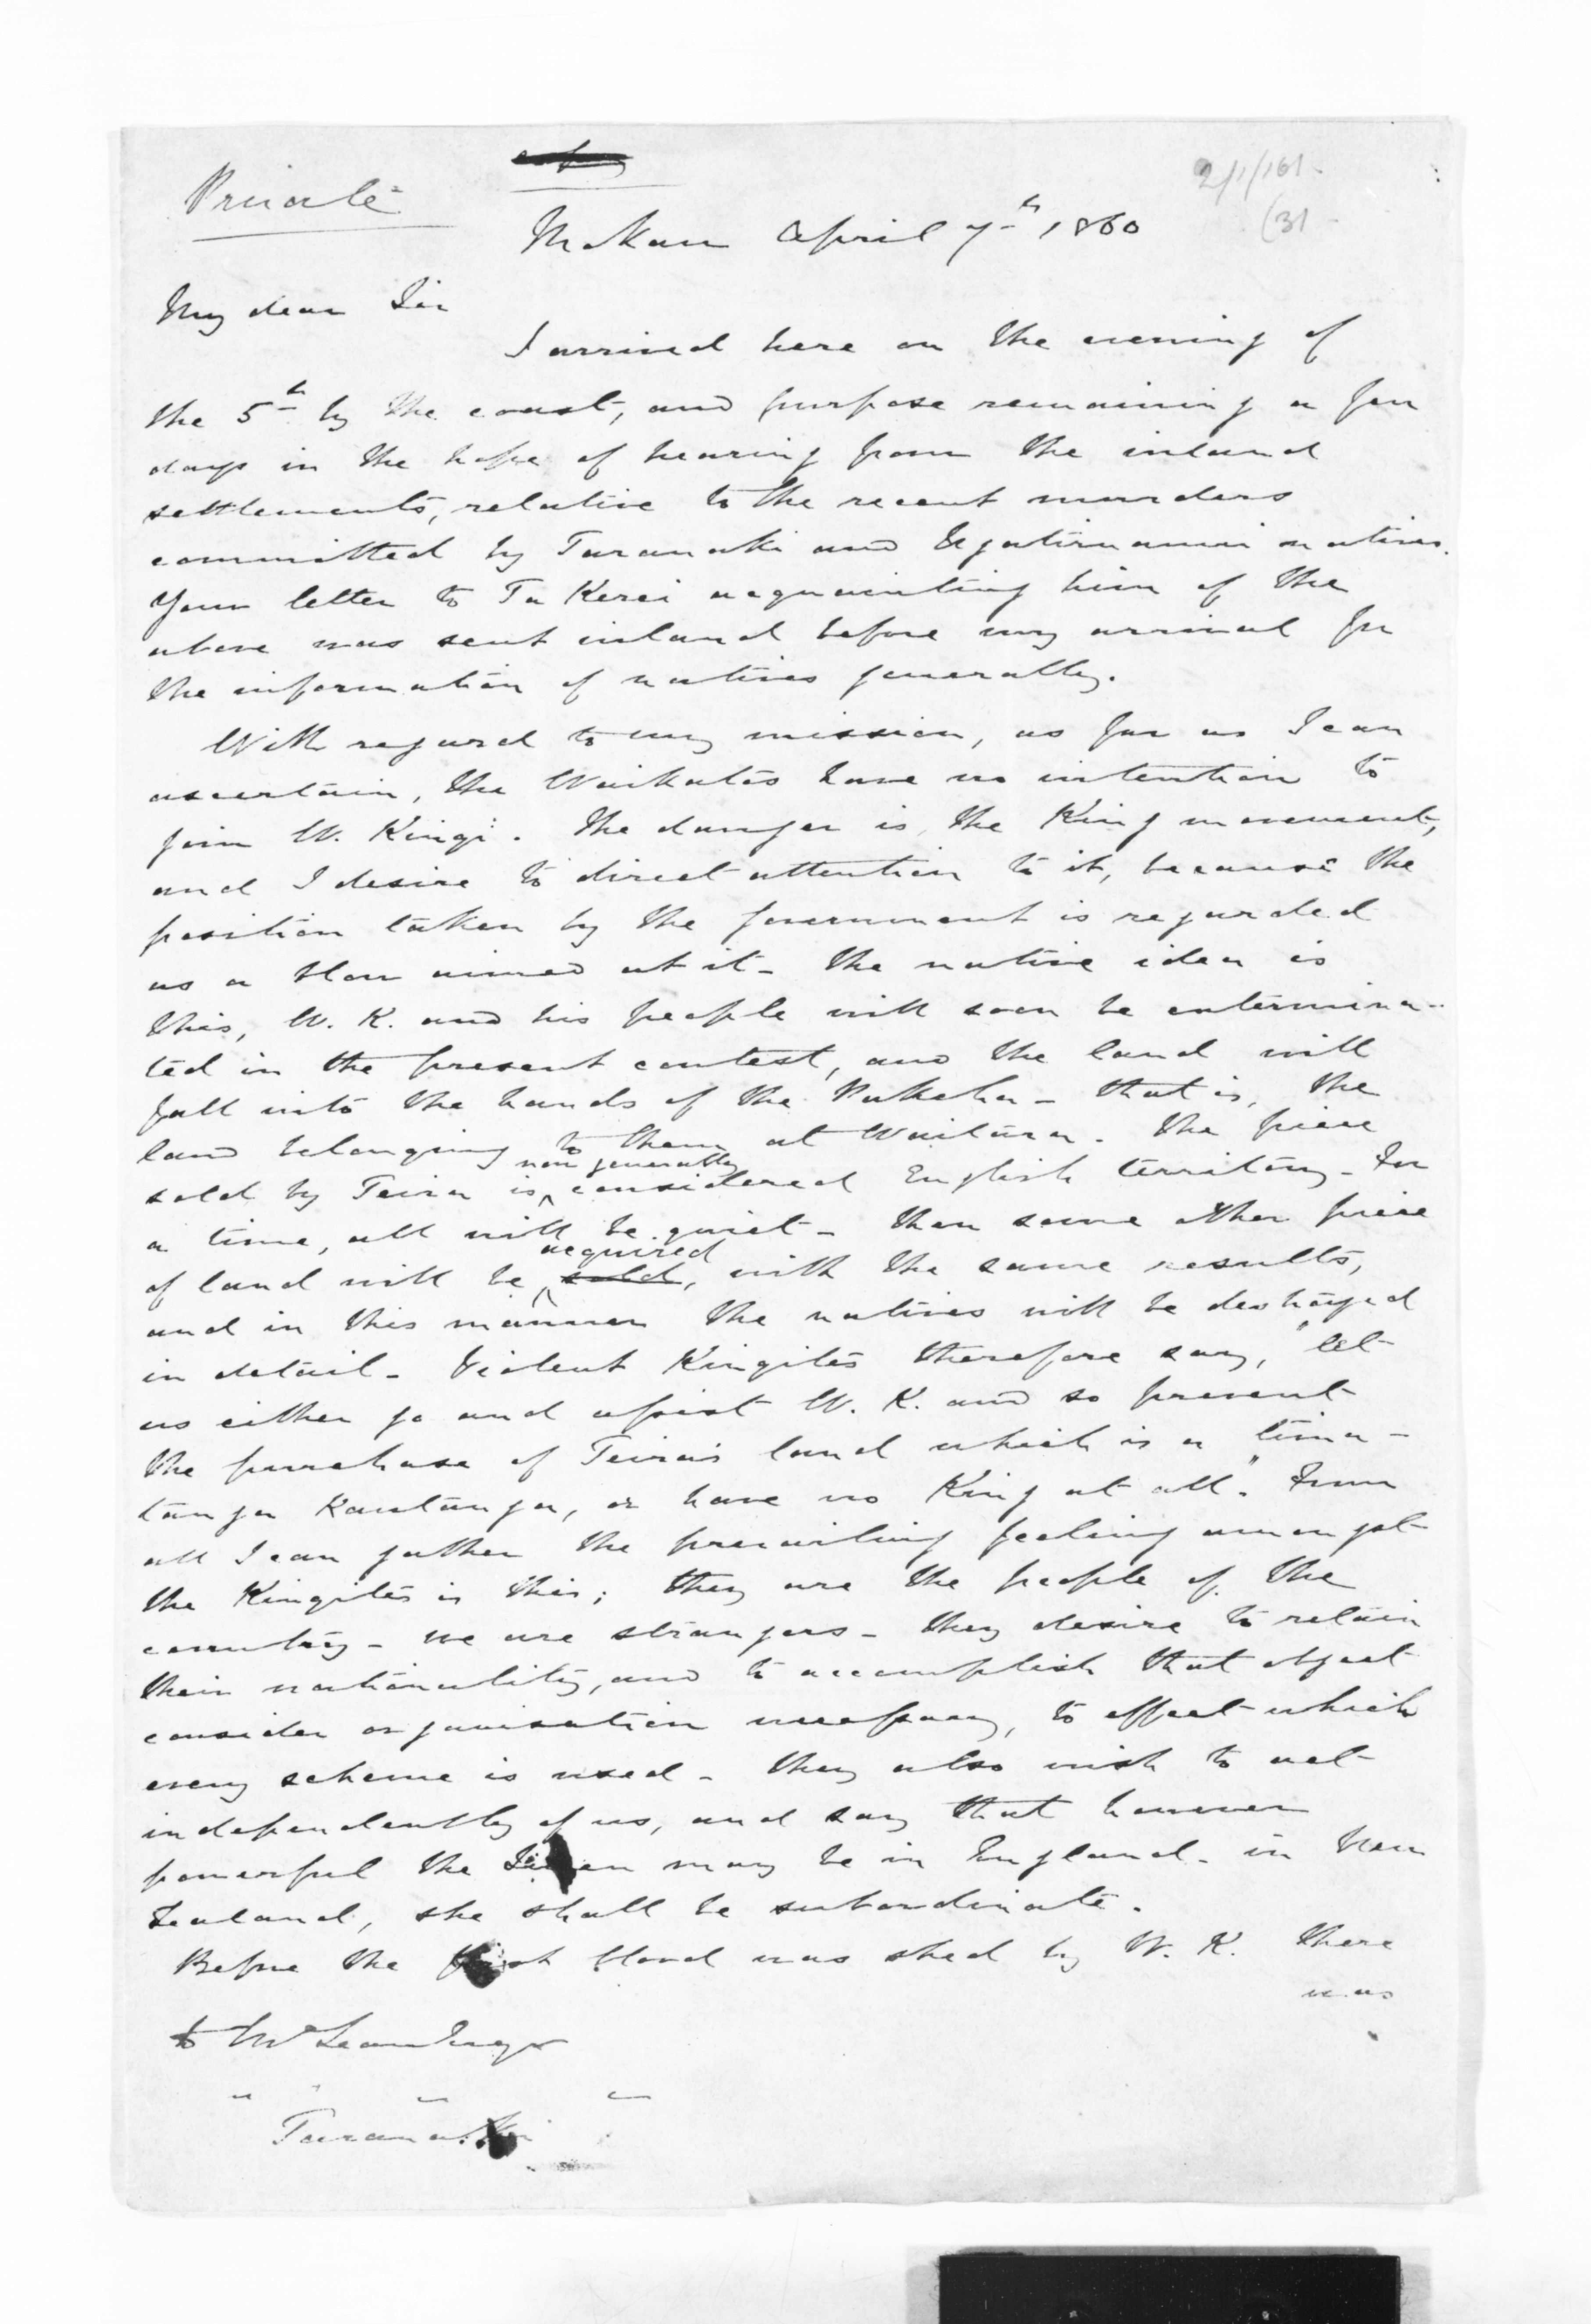 Private
2/1/161
(31
Mokau April 7th 1860
My dear Sir
I arrived here on the evening of
the 5th by the coast, and purpose remaining a few
days in the hope of hearing from the inland
settlements, relative to the recent murders
committed by Taranaki and Ngatiruanui natives.
Your letter to Ta Kerei acquainting him of the
above was sent inland before my arrival for
the information of natives generally.
With regard to my mission, as far as I can
ascertain, the Waikatos have no intention to
join W. Kingi. The danger is, the King movement,
and I desire to direct attention to it, because the
position taken by the Government is regarded
as a blow aimed at it - The native idea is
this, W. K. and his people will soon be extermina-
ted in the present contest, and the land will
fall into the hands of the Pakeha - that is, the
land belonging to them at Waitara. The piece
sold by Teira is now generally considered English territory - For
a time, all will be quiet - then some other piece
of land will be sold acquired, with the same results,
and in this manner the natives will be destroyed
in detail - Violent Kingites therefore say, "let
us either go and assist W. K. and so prevent
the purchase of Teira's land which is a tima-
tanga Kautanga, or have no King at all." From
all I can gather the prevailing feeling amongst
the Kingites is this; they are the people of the
country - we are strangers - they desire to retain
their nationality, and to accomplish that object
consider organisation necessary, to effect which
every scheme is used - they also wish to act
independently of us, and say that however
powerful the Queen may be in England - in New
Zealand, she shall be subordinate.
Before the first blood was shed by W. K. there
was
to McLean Esqr
Taranaki